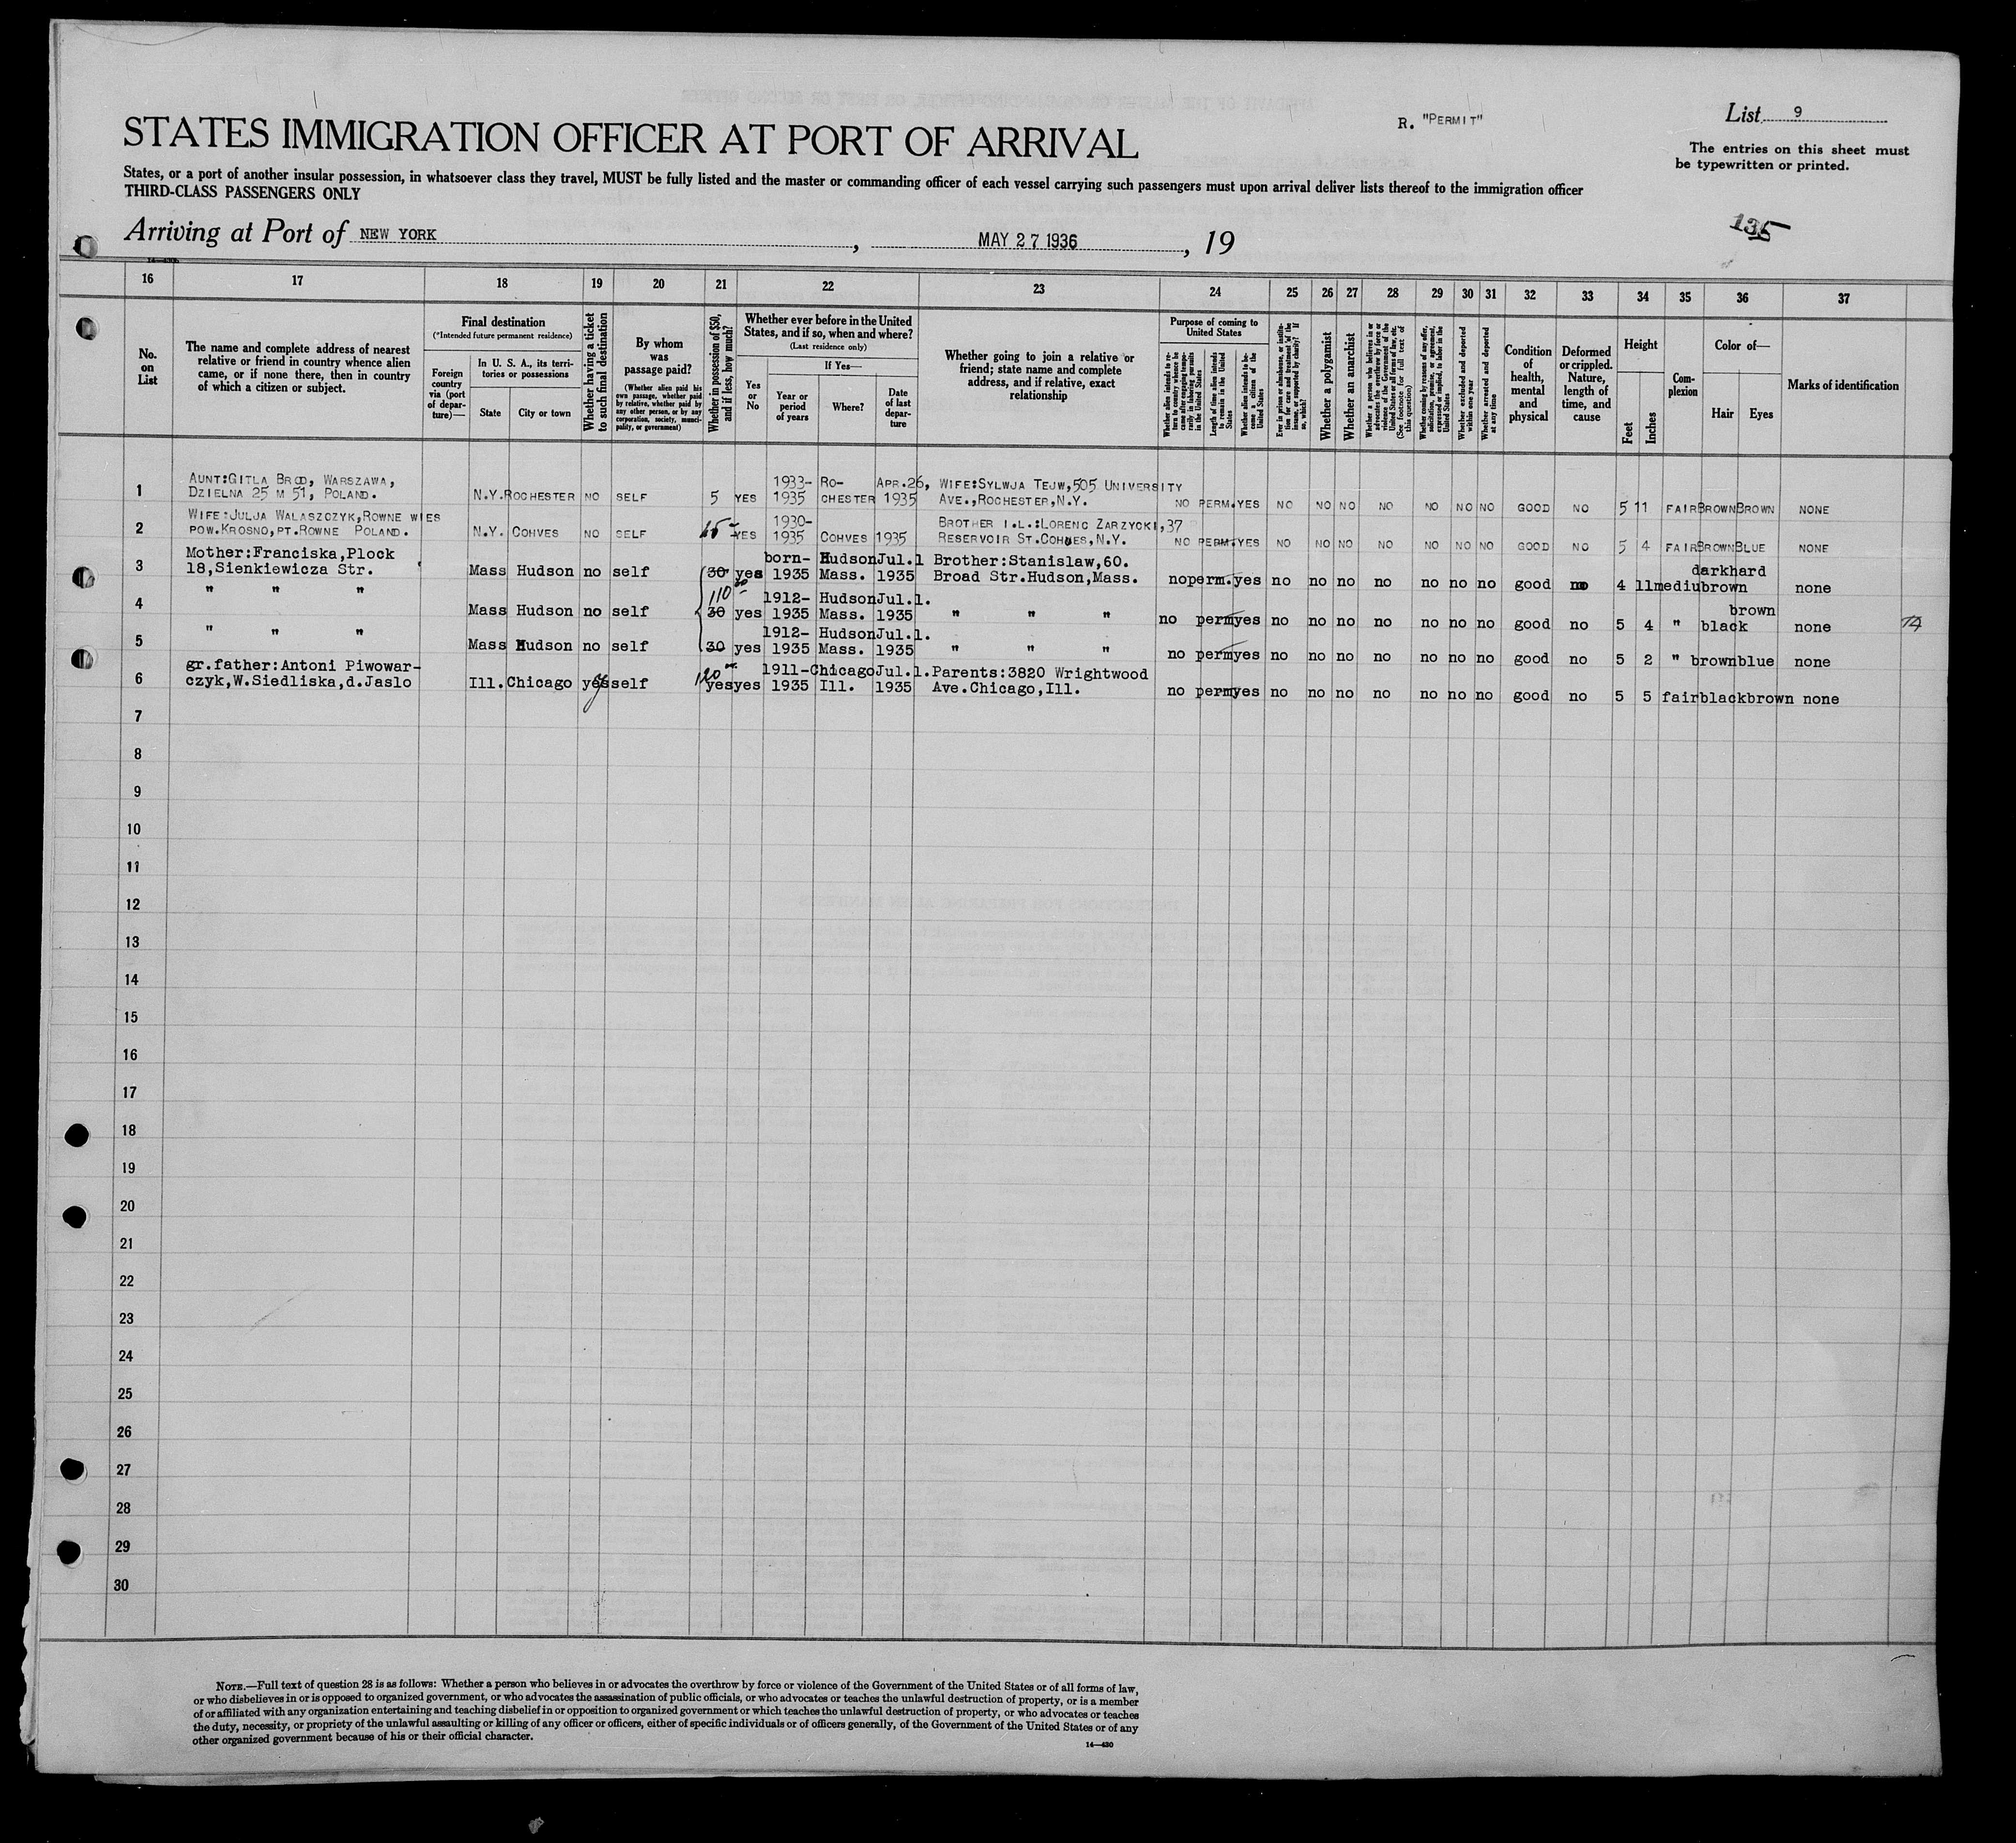 R. "PERMIT"
List 9
STATES IMMIGRATION OFFICER AT PORT OF ARRIVAL
The entries on this sheet must
be typewritten or printed.
States, or a port of another insular possession, in whatsoever class they travel, MUST be fully listed and the master or commanding officer of each vessel carrying such passengers must upon arrival deliver lists thereof to the immigration officer
THIRD-CLASS PASSENGERS ONLY
135
Arriving at Port of NEW YORK, MAY 27 1936, 19
16 17 18 19 20 21 22 23 24 25 26 27 28 29 30 31 32 33 34 35 36 37
No. on List
The name and complete address of nearest relative or friend in country whence alien came, or if none there, then in country of which a citizen or subject.
Final destination
(*Intended future permanent residence)
Foreign country via (port of departure)—
In U. S. A., its territories or possessions
State City or town
Whether having a ticket to such final destination
By whom was passage paid?
(Whether alien paid his own passage, whether paid by relative, whether paid by any other person, or by any corporation, society, municipality, or government)
Whether in possession of $50, and if less, how much?
Whether ever before in the United States, and if so, when and where?
(Last residence only)
Yes or No
If Yes—
Year or period of years
Where?
Date of last departure
Whether going to join a relative or friend; state name and complete address, and if relative, exact relationship
Purpose of coming to United States
Whether alien intends to return to country whence he came after engaging temporarily in laboring pursuits in the United States
Length of time alien intends to remain in the United States
Whether alien intends to become a citizen of the United States
Ever in prison or almshouse, or institution for care and treatment of the insane, or supported by charity? If so, which?
Whether a polygamist
Whether an anarchist
Whether a person who believes in or advocates the overthrow by force or violence of the Government of the United States or all forms of law, etc. (See footnote for full text of this question)
Whether coming by reasons of any offer, solicitation, promise, or agreement, expressed or implied, to labor in the United States
Whether excluded and deported within one year
Whether arrested and deported at any time
Condition of health, mental and physical
Deformed or crippled. Nature, length of time, and cause
Height
Feet Inches
Complexion
Color of—
Hair Eyes
Marks of identification
1 AUNT:GITLA BROD, WARSZAWA,
DZIELNA 25 M 51, POLAND. N.Y. ROCHESTER NO SELF 5 YES 1933-1935 ROCHESTER APR.26, 1935 WIFE:SYLWJA TEJW,505 UNIVERSITY AVE.,ROCHESTER,N.Y. NO PERM. YES NO NO NO NO NO NO NO GOOD NO 5 11 FAIR BROWN BROWN NONE
2 WIFE:JULJA WALASZCZYK,ROWNE WIES
POW.KROSNO,PT.ROWNE POLAND. N.Y. COHVES NO SELF YES 1930-1935 COHVES 1935 BROTHER I.L.:LORENC ZARZYCKI,37 RESERVOIR ST.COHOES,N.Y. NO PERM. YES NO NO NO NO NO NO NO GOOD NO 5 4 FAIR BROWN BLUE NONE
3 Mother:Franciska,Plock
18,Sienkiewicza Str. Mass Hudson no self 30 yes born-1935 Hudson Mass. Jul.1 1935 Brother:Stanislaw,60. Broad Str.Hudson,Mass. no perm. yes no no no no no no no good no 4 11 mediu darkhard brown none
110
4 " " " Mass Hudson no self 30 yes 1912-1935 Hudson Mass. Jul.1. 1935 " " " no perm yes no no no no no no no good no 5 4 " black brown none
5 " " " Mass Hudson no self 30 yes 1912-1935 Hudson Mass. Jul.1. 1935 " " " no perm yes no no no no no no no good no 5 2 " brown blue none
120
6 gr.father:Antoni Piwowar-
czyk,W.Siedliska,d.Jaslo Ill. Chicago yes self yes yes 1911-1935 Chicago Ill. Jul.1. 1935 Parents:3820 Wrightwood Ave.Chicago,Ill. no perm yes no no no no no no no good no 5 5 fair black brown none
7
8
9
10
11
12
13
14
15
16
17
18
19
20
21
22
23
24
25
26
27
28
29
30
NOTE.—Full text of question 28 is as follows: Whether a person who believes in or advocates the overthrow by force or violence of the Government of the United States or of all forms of law,
or who disbelieves in or is opposed to organized government, or who advocates the assassination of public officials, or who advocates or teaches the unlawful destruction of property, or is a member
of or affiliated with any organization entertaining and teaching disbelief in or opposition to organized government or which teaches the unlawful destruction of property, or who advocates or teaches
the duty, necessity, or propriety of the unlawful assaulting or killing of any officer or officers, either of specific individuals or of officers generally, of the Government of the United States or of any
other organized government because of his or their official character.
14—430